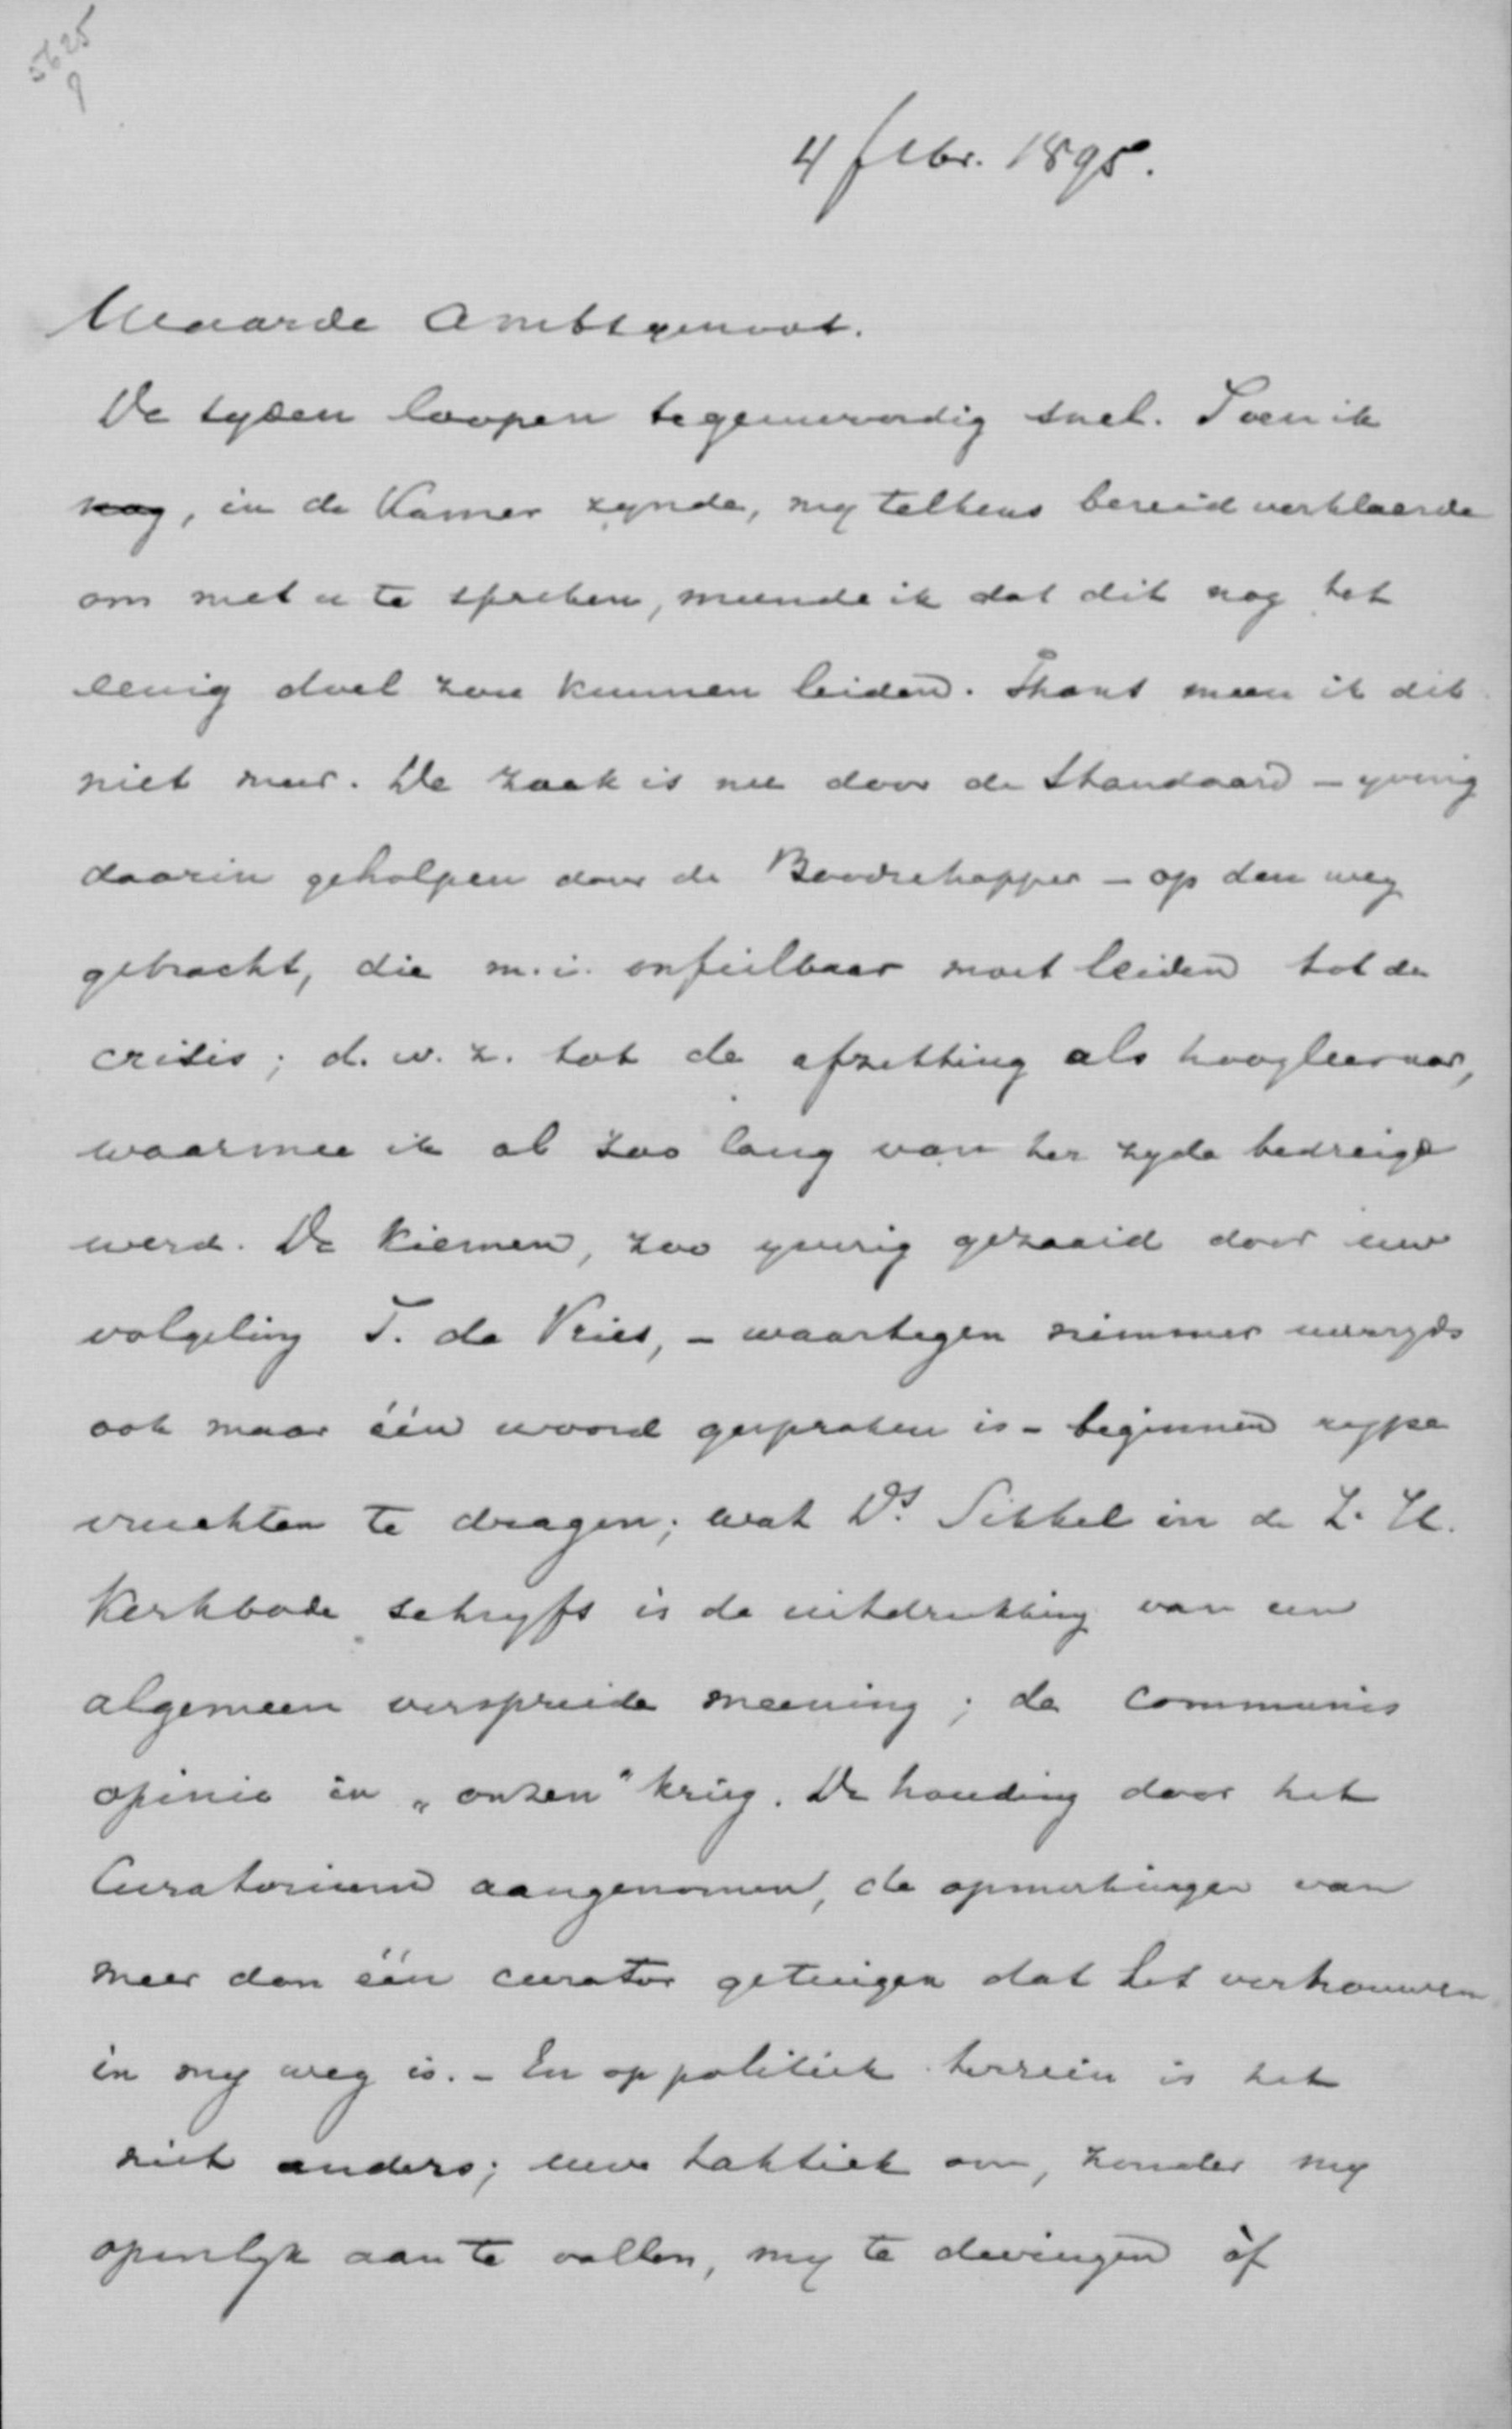 5625
9
4 febr. 1895.
Waarde Ambtgenoot.
De tyden loopen tegenwoordig snel. Toen ik
nog, in de Kamer zynde, my telkens bereid verklaarde
om met u te spreken, meende ik dat dit nog tot
eenig doel zou kunnen leiden. Thans meen ik dit
niet meer. De zaak is nu door de Standaard – yverig
daarin geholpen door de Boodschapper – op den weg
gebracht, die m.i. onfeilbaar moet leiden tot de
crisis; d.w.z. tot de afzetting als hoogleeraar,
waarmee ik al zoo lang van her zyde bedreigd
werd. De kiemen, zoo yverig gezaaid door uw
volgeling T. de Vries, – waartegen nimmer uwerzyds
ook maar één woord gesproken is – beginnen rype
vruchten te dragen; wat Ds. Sikkel in de Z. H.
Kerkbode schryft is de uitdrukking van een
algemeen verspreide meening; de communis
opinio in „onzen" krieg. De houding door het
Curatorium aangenomen, de opmerkingen van
meer dan één curator getuigen dat het vertrouwen
in my weg is. – En op politiek terrein is het
niet anders; uwe taktiek om, zonder my
openlyk aan te vallen, my te dwingen òf